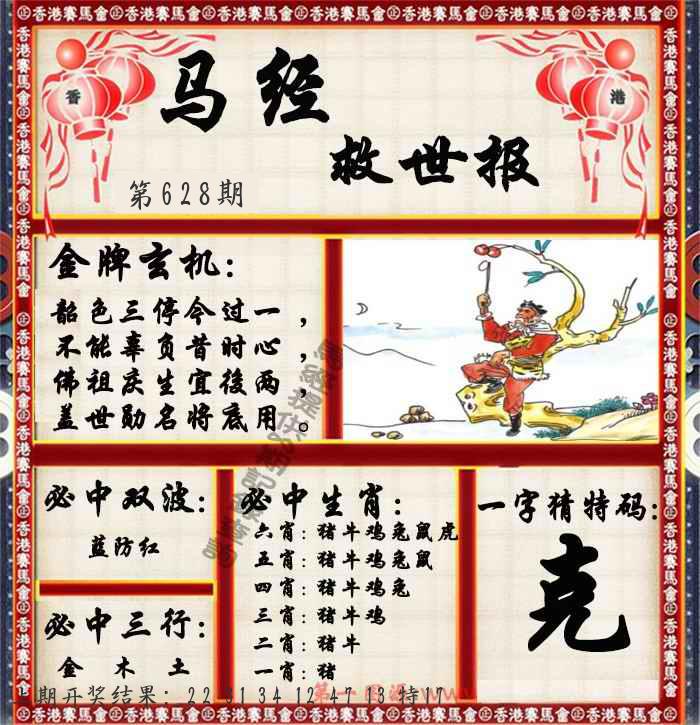 香 港
马经
救世报
第628期
金牌玄机：
韶色三停今过一，
不能辜负昔时心，
佛祖庆生宜後两，
盖世勋名将底用。
必中双波：
蓝防红
必中三行：
金 木 土
必中生肖：
六肖：猪牛鸡兔鼠虎
五肖：猪牛鸡兔鼠
四肖：猪牛鸡兔
三肖：猪牛鸡
二肖：猪牛
一肖：猪
一字猜特码：
克
期开奖结果：22 31 34 12 47 13 特17
香港賽馬會